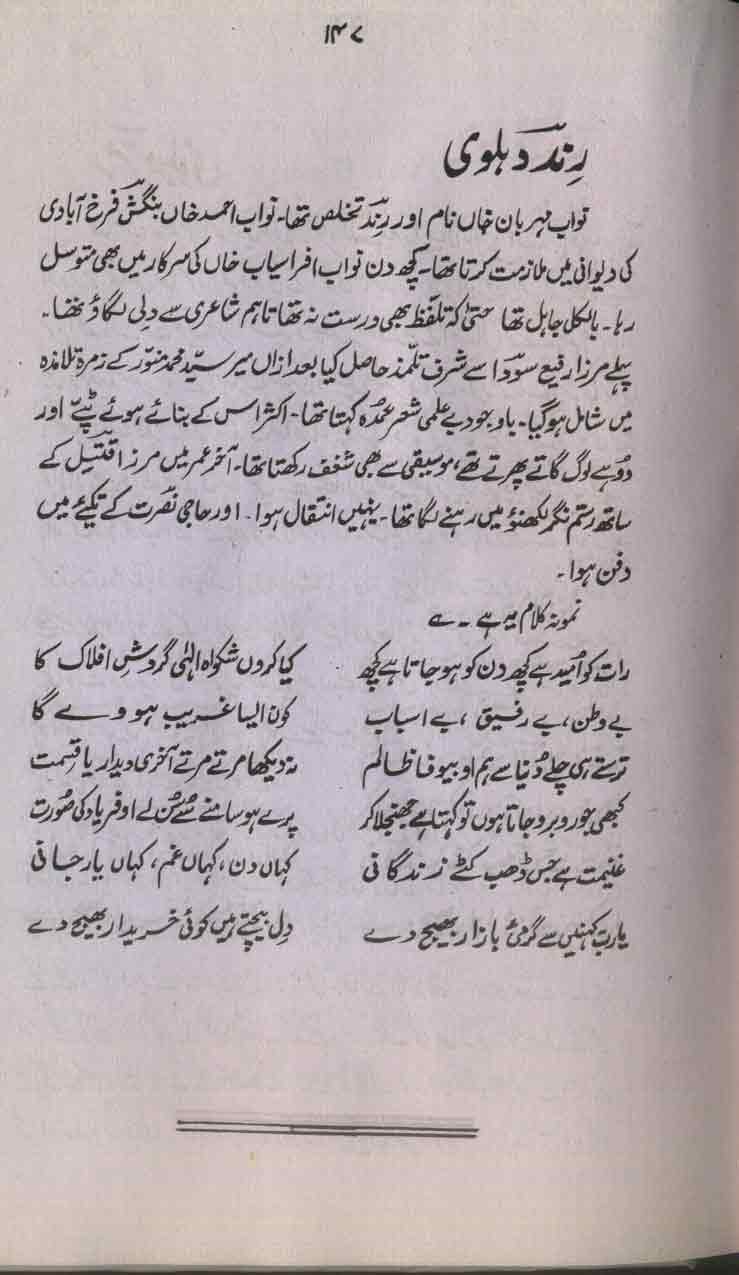 ۱۴۷
رِند دہلوی
نواب مہربان خاں نام اور رِند تخلص تھا۔ نواب احمد خاں بنگش فرخ آبادی
کی دیوانی میں ملازمت کرتا تھا۔ کچھ دن نواب افراسیاب خاں کی سرکار میں بھی متوسل
رہا۔ بالکل جاہل تھا حتیٰ کہ تلفظ بھی درست نہ تھا تاہم شاعری سے دلی لگاؤ تھا۔
پہلے مرزا رفیع سودا سے شرف تلمّذ حاصل کیا بعد ازاں میر سیّد محمد منوّر کے زمرۂ تلامذہ
میں شامل ہوگیا۔ باوجود بے علمی شعر عمدہ کہتا تھا۔ اکثر اس کے بنائے ہوئے ٹپے اور
دوہے لوگ گاتے پھرتے تھے، موسیقی سے بھی شغف رکھتا تھا۔ آخر عمر میں مرزا قتیل کے
ساتھ رستم نگر لکھنؤ میں رہنے لگا تھا۔ یہیں انتقال ہوا۔ اور حاجی نصرت کے تکیئے میں
دفن ہوا۔
نمونہ کلام یہ ہے ۔ ؎
رات کو اُمید ہے کچھ دن کو ہو جاتا ہے کچھ کیا کروں شکواہ الٰہی گردشِ افلاک کا
بے وطن، بے رفیق، بے اسباب کون ایسا غریب ہووے گا
ترستے ہی چلے دُنیا سے ہم او بیوفا ظالم نہ دیکھا مرتے مرتے آخری دیدار یا قسمت
کبھی جو روبرو جاتا ہوں تو کہتا ہے جھنجلا کر پرے ہو سامنے سے سُن لے او فریاد کی صُورت
غنیمت ہے جس ڈھب کٹے زندگانی کہاں دن، کہاں غم، کہاں یار جانی
یارب کہیں سے گرمیٔ بازار بھیج دے دِل بیچتے ہیں کوئی خریدار بھیج دے